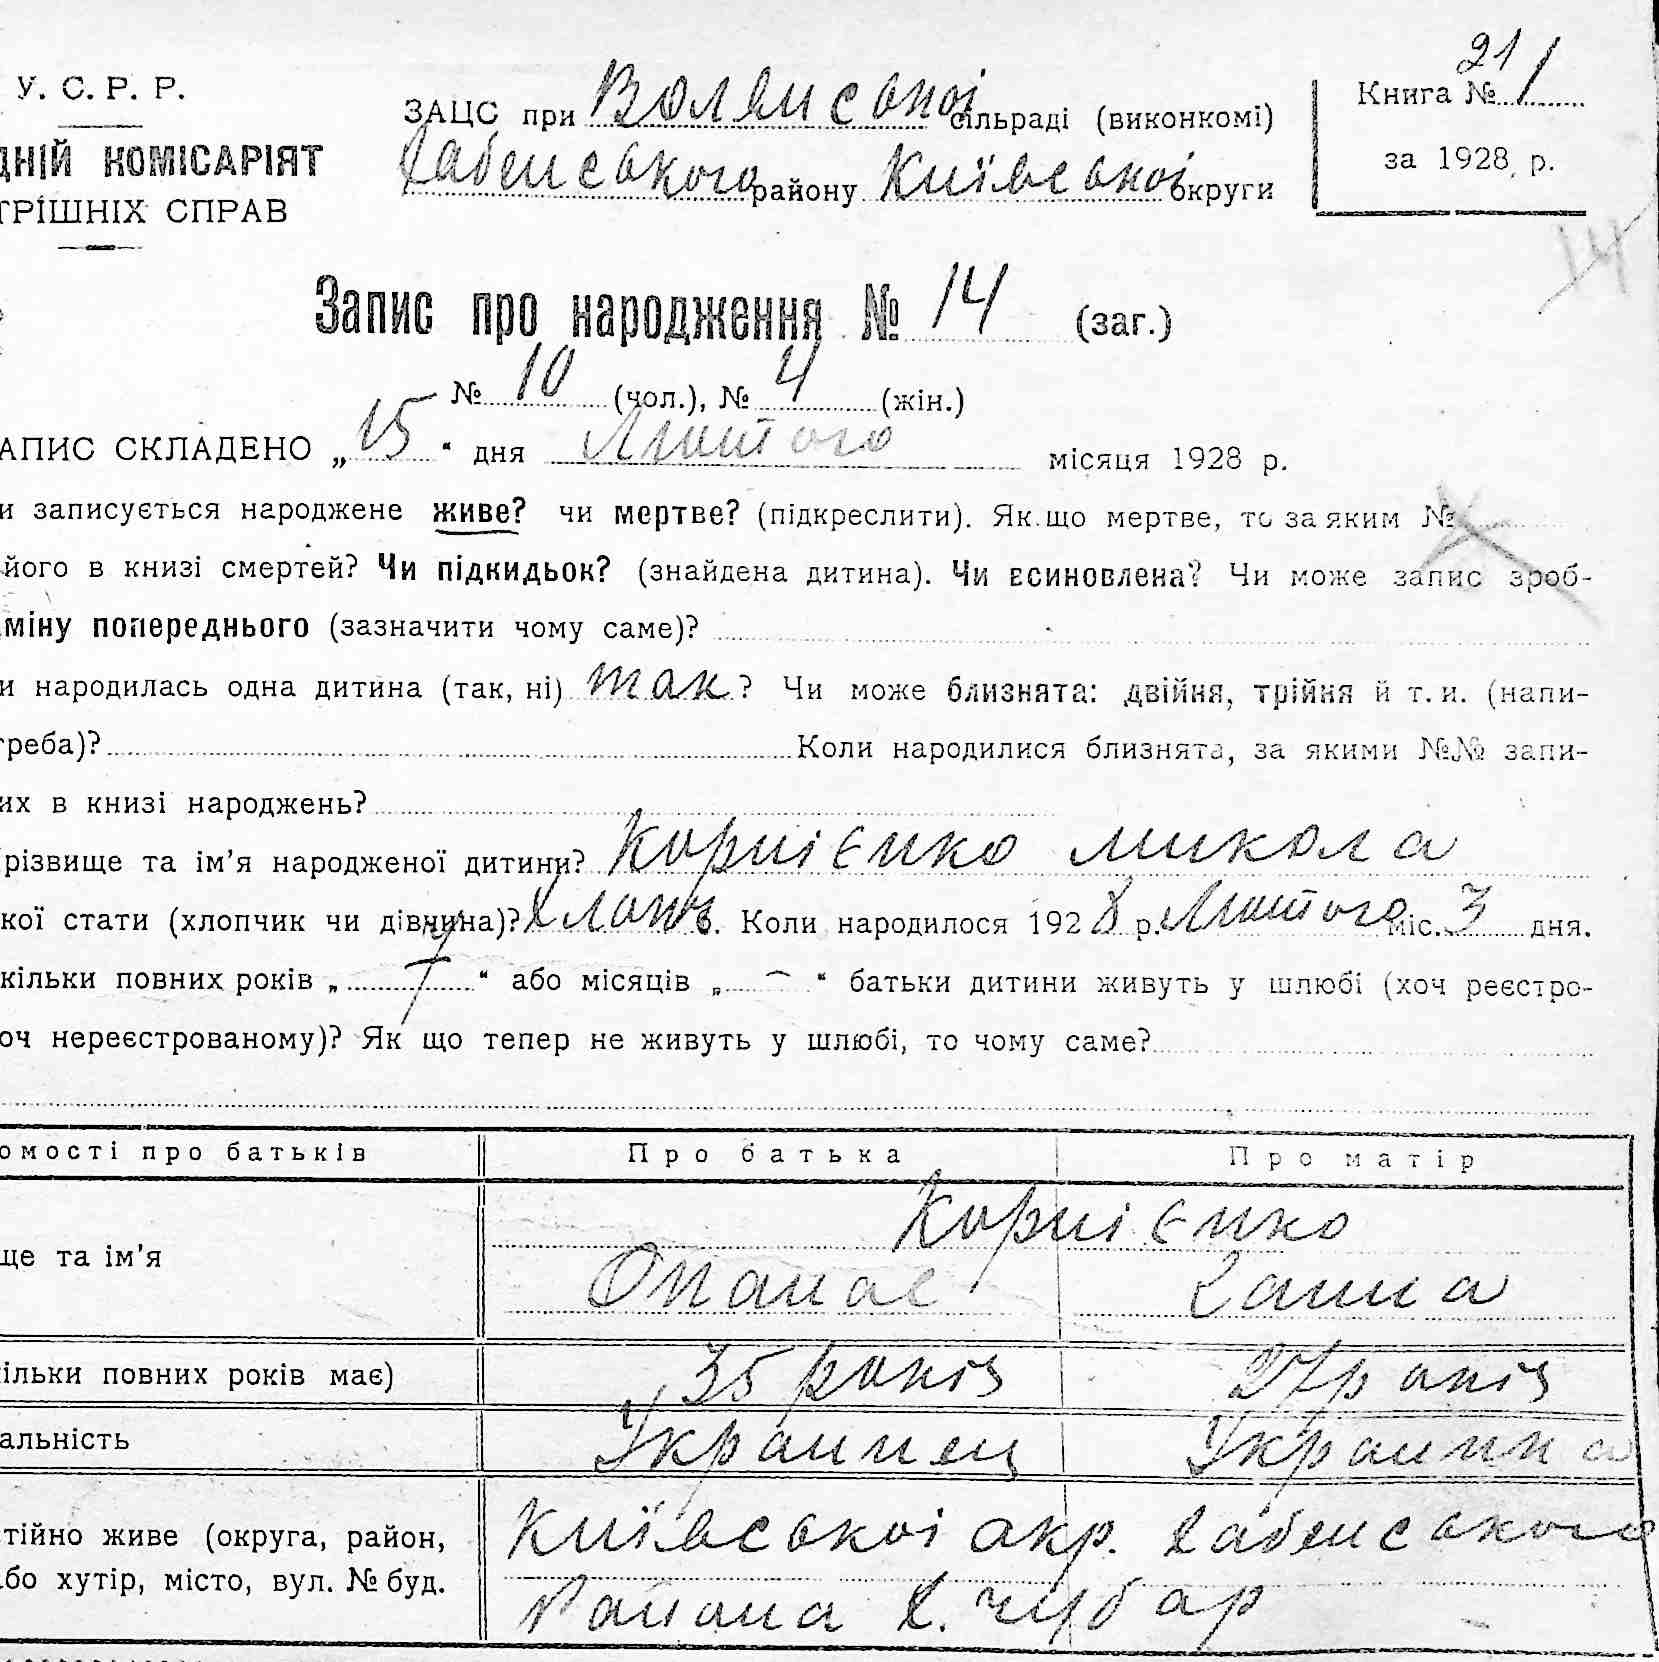 У. С. Р. Р.
ДНІЙ КОМІСАРІЯТ
ТРІШНІХ СПРАВ
ЗАЦС при сільраді (виконкомі)
Хабенського району Київської округи
21
Книга № 1
за 1928 р.
14
Запис про народження № 14 (заг.)
№ 10 (чол.), № 4 (жін.)
АПИС СКЛАДЕНО „15“ дня Лютого місяця 1928 р.
и записується народжене живе? чи мертве? (підкреслити). Як що мертве, то за яким №
його в книзі смертей? Чи підкидьок? (знайдена дитина). Чи всиновлена? Чи може запис зроб-
міну попереднього (зазначити чому саме)?
и народилась одна дитина (так, ні) так? Чи може близнята: двійня, трійня й т. и. (напи-
треба)? Коли народилися близнята, за якими №№ запи-
их в книзі народжень?
різвище та ім’я народженої дитини? Корнієнко Микола
кої стати (хлопчик чи дівчина)? Хлоп. Коли народилося 1928 р. Лютого міс. 3 дня.
кільки повних років „7“ або місяців „—“ батьки дитини живуть у шлюбі (хоч реєстро-
оч нереєстрованому)? Як що тепер не живуть у шлюбі, то чому саме?
омості про батьків Про батька Про матір
Корнієнко
ще та ім’я Опанас Ганна
ільки повних років має) 35 років 27 років
альність Украинец Украинка
Київської окр. Хабенського
тійно живе (округа, район,
або хутір, місто, вул. № буд. Района Х. Чубар